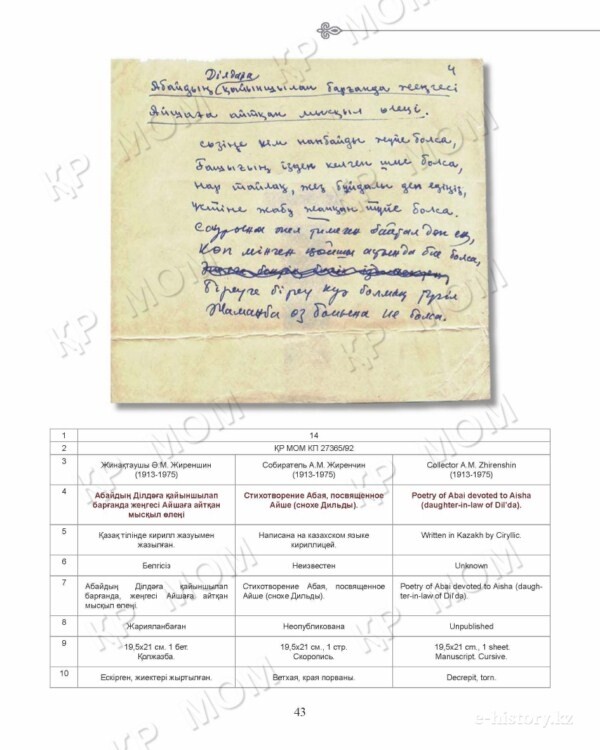 4
Ділдаға
Абайдың қайыншылап барғанда жеңгесі
Айшаға айтқан мысқыл өлеңі.
сөзіңе кем нанбайды жүйе болса,
келген болса,
нар тайлақ, жез бұйдалы ден едіңіз,
Үстіне жабу жапқан түйе болса.
Көп мінген ауында бие болса,
Біреуге біреу күә болмақ түгіл
Жаманба өз бойыңа ие болса.
1 14
2 ҚР МОМ КП 27365/92
3 Жинақтаушы Ә.М. Жиреншин (1913-1975) Собиратель А.М. Жиренчин (1913-1975) Collector A.M. Zhirenshin (1913-1975)
4 Абайдың Ділдәға қайыншылап барғанда жеңгесі Айшаға айтқан мысқыл өлеңі Стихотворение Абая, посвященное Айше (снохе Дильды). Poetry of Abai devoted to Aisha (daughter-in-law of Dil'da).
5 Қазақ тілінде кирилл жазуымен жазылған. Написана на казахском языке кириллицей. Written in Kazakh by Ciryllic.
6 Белгісіз Неизвестен Unknown
7 Абайдың Ділдәға қайыншылап барғанда, жеңгесі Айшаға, айтқан мысқыл өлеңі. Стихотворение Абая, посвященное Айше (снохе Дильды). Poetry of Abai devoted to Aisha (daugh-ter-in-law of Dil'da).
8 Жарияланбаған Неопубликована Unpublished
9 19,5x21 см. 1 бет. Қолжазба. 19,5x21 см., 1 стр. Скоропись. 19,5x21 cm., 1 sheet. Manuscript, Cursive.
10 Ескірген, жиектері жыртылған. Ветхая, края порваны. Decrepit, torn.
43
e-history.kz
ҚР МОМ